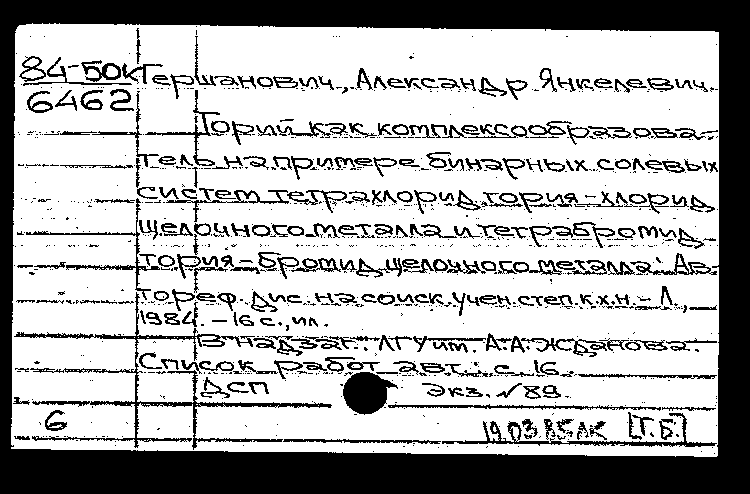 84-50к
6462
Гершанович, Александр Янкелевич.
Торий как комплексообразова-
тель на примере бинарных солевых
систем тетрахлорид тория-хлорид
щелочного металла и тетрабромид
тория-бромид щелочного металла: Ав-
тореф. дис. на соиск. учен. степ. к.х.н. - Л.,
1984. - 16 с., ил.
В надзаг.: ЛГУ им. А.А. Жданова.
Список работ авт.: с. 16.
ДСП экз. № 89.
6
19.03.85 ЛК [Г.Б.]